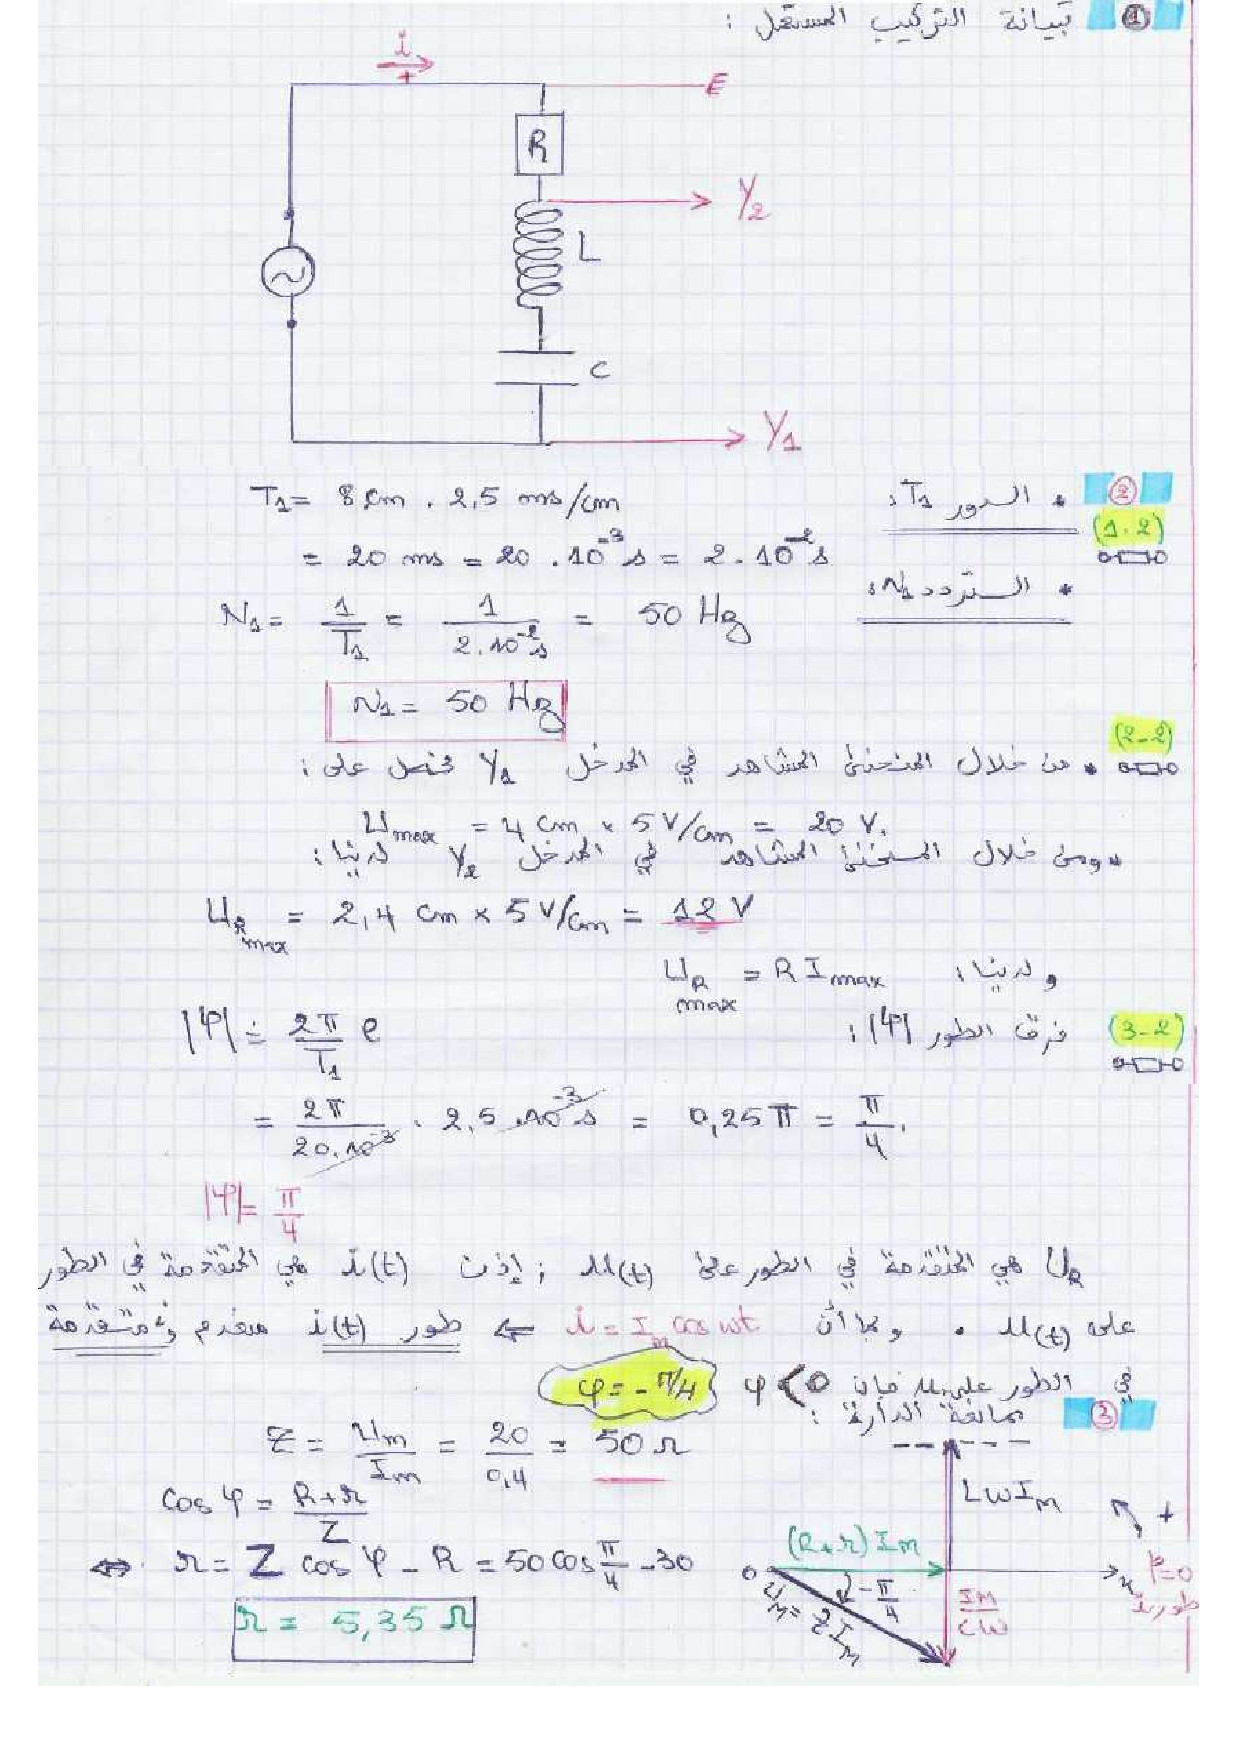 ① تبيانة التركيب المستعمل :
i
+
E
R
Y2
L
C
Y1
②
(1-2) * الدور T1 :
T1 = 8 cm . 2,5 ms/cm
= 20 ms = 20 . 10^-3 s = 2 . 10^-2 s
* التردد N1 :
N1 = 1/T1 = 1/(2.10^-2 s) = 50 Hz
N1 = 50 Hz
(2-2) * من خلال المنحنى المشاهد في المدخل Y1 نحصل على :
Umax = 4 cm x 5 V/cm = 20 V.
* ومن خلال المنحنى المشاهد في المدخل Y2 لدينا :
URmax = 2,4 cm x 5 V/cm = 12 V
ولدينا : URmax = R Imax
(3-2) فرق الطور |φ| :
|φ| = 2π/T1 e
= 2π/20.10^-3 . 2,5 .10^-3 s = 0,25 π = π/4 .
|φ| = π/4
UR هي المتقدمة في الطور على u(t) ; إذن i(t) هي المتقدمة في الطور
على u(t) . وبما أن i = Im cos wt ⇐ طور i(t) منعدم و متقدمة
في الطور على u فإن φ < 0 φ = - π/4
③ ممانعة الدارة :
Z = Um/Im = 20/0,4 = 50 Ω
cos φ = R+r/Z
⇔ r = Z cos φ - R = 50 cos π/4 - 30
r = 5,35 Ω
LwIm
+
(R+r) Im
O
-π/4
x φ=0
طور i
Im/Cw
Um = Z Im